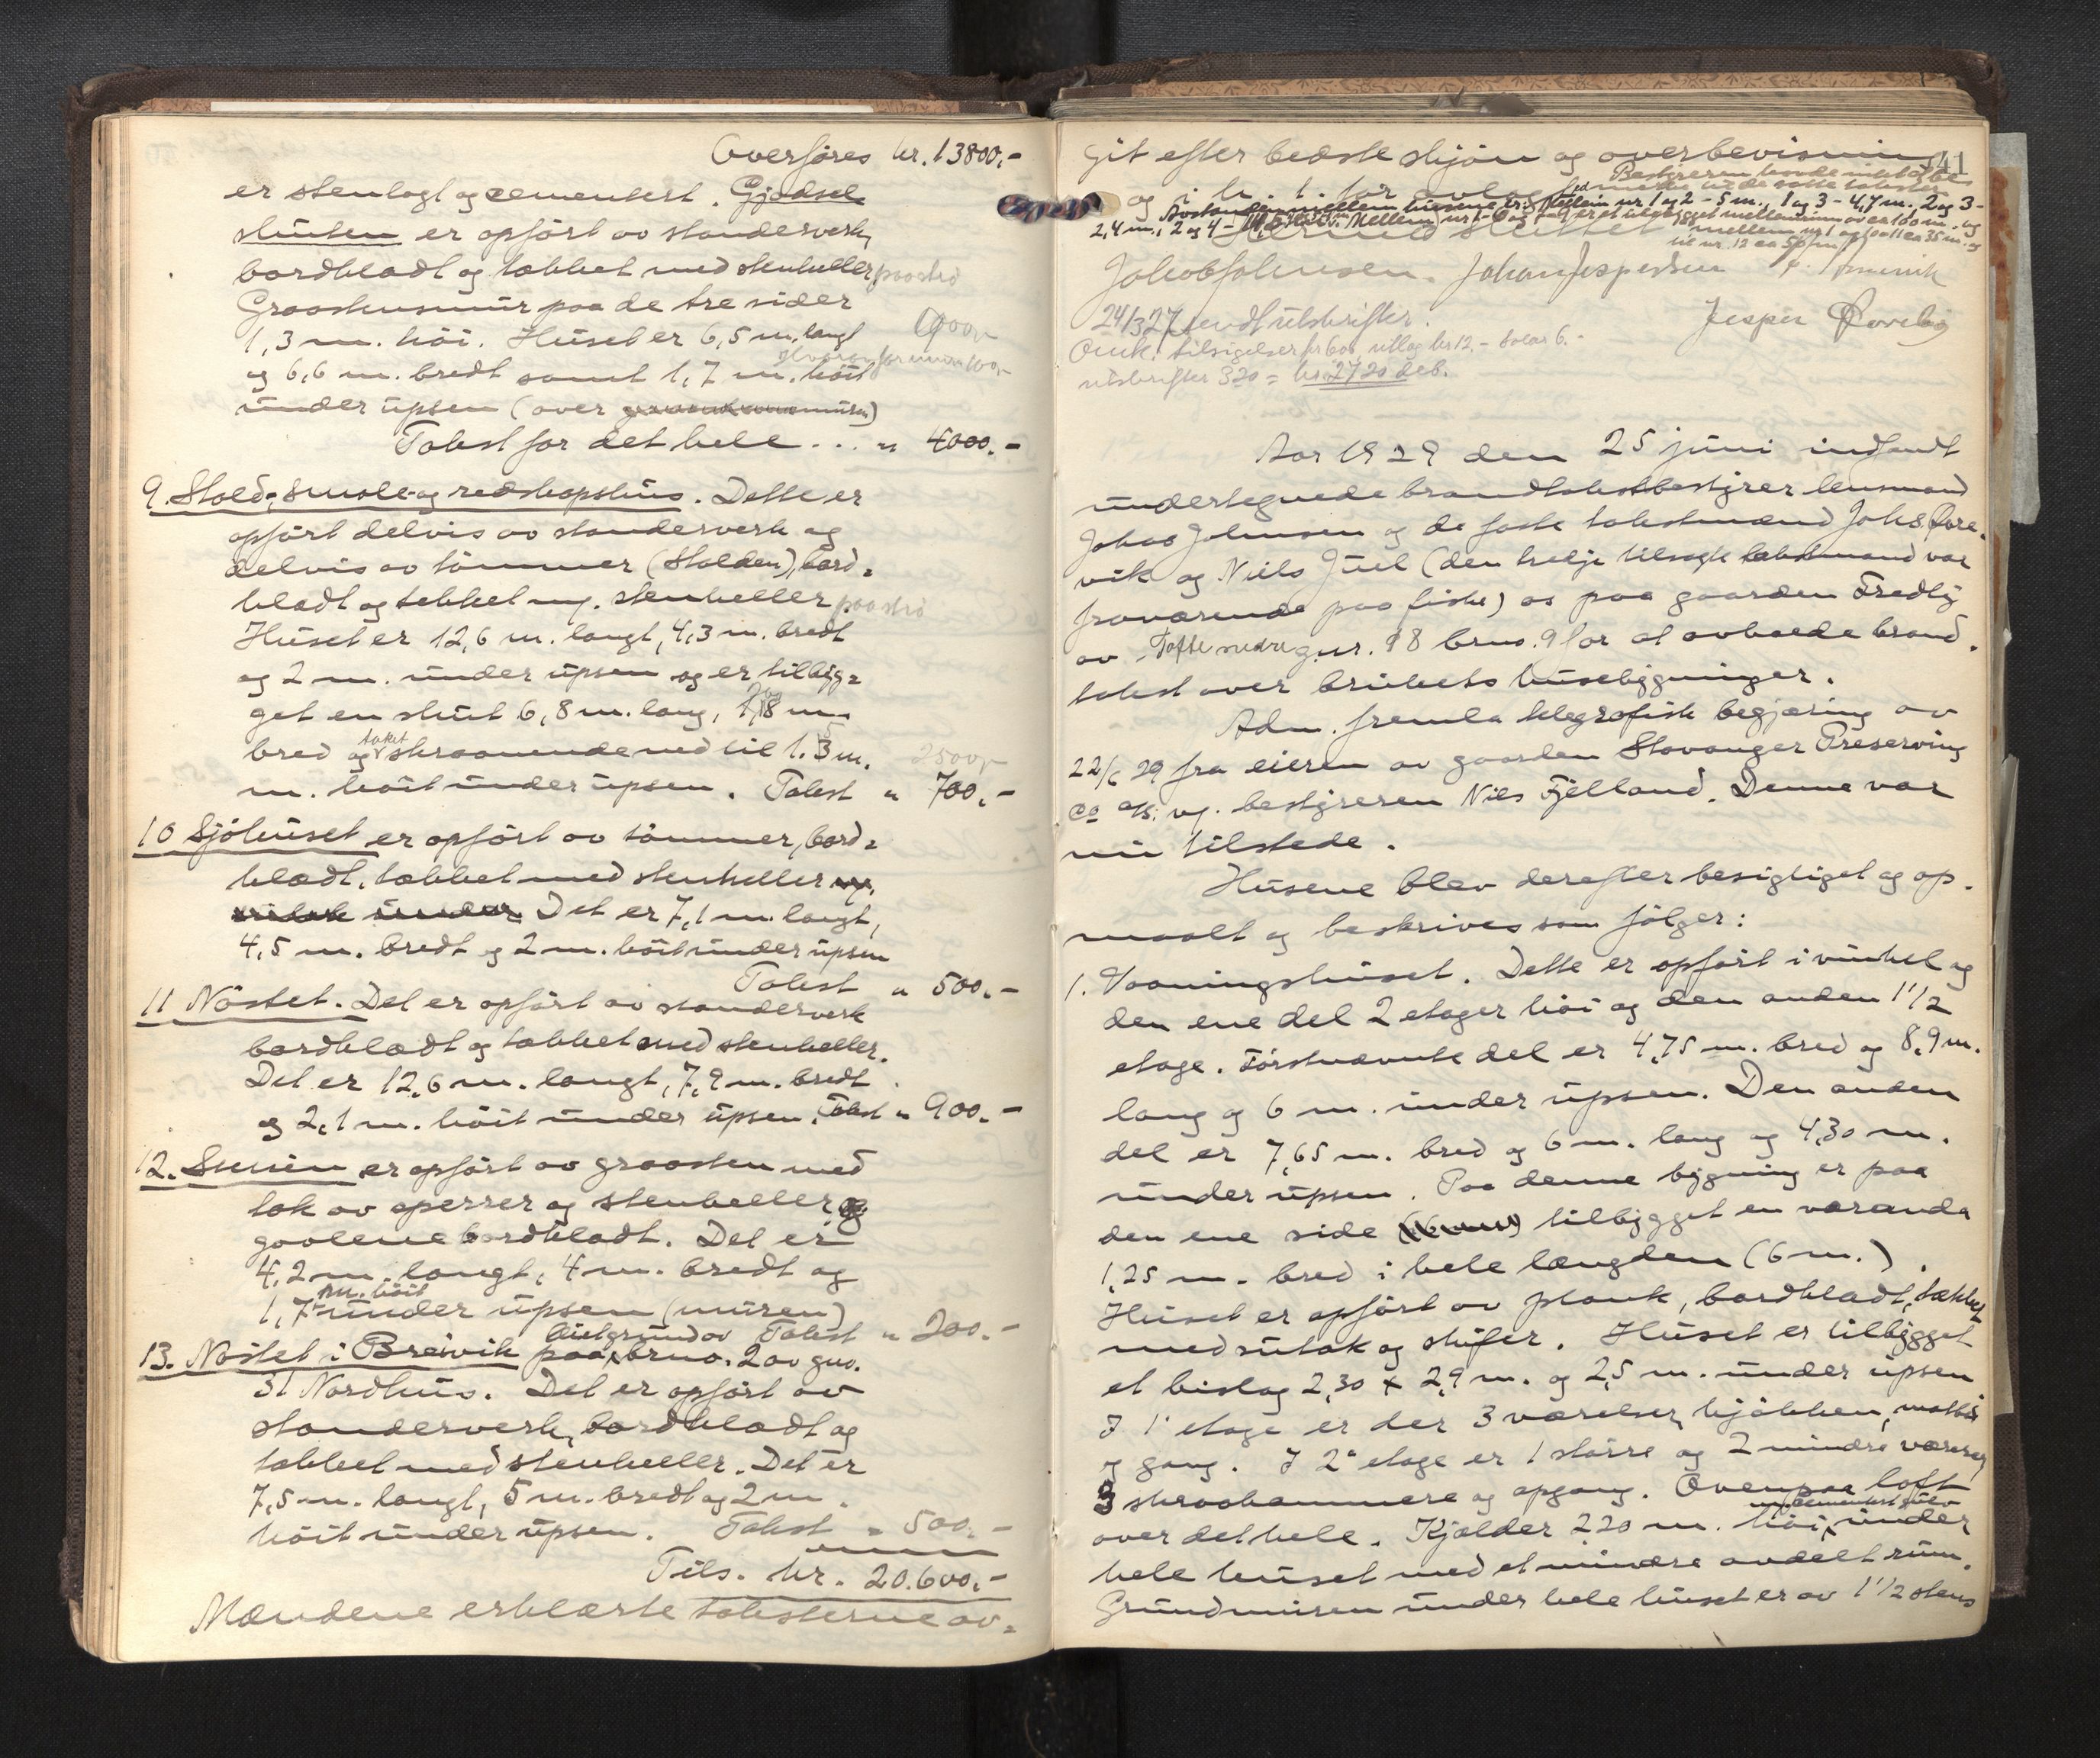 Overføres kr. 13800.-
er stenlagt og cementert. Gjødsel
skuten er opført av standerverk,
bordklædt og tækket med stenheller paa strø
Graastensmur paa de tre sider
1,3 m. høi. Huset er 6,5 m. langt
og 6,6 m. bredt samt 1,7 m. høit
hvorav for muren 100,-
under upsen (over muren)
Takst for det hele ... " 4000.-
9. Stald-, smale- og redskapshus. Dette er
opført delvis av standerverk og
delvis av tømmer (stalden), bord-
klædt og tekket m/. stenheller paa strø
Huset er 12,6 m. langt, 4,3 m. bredt
og 2 m. under upsen og er tilbyg-
get en skut 6,8 m. lang, 1,8 m.
bred og taket skraanende ned til 1.3 m.
2500,-
m. høit under upsen. Takst " 700.-
10 Sjøhuset er opført av tømmer, bord-
klædt, tækket med stenheller
Det er 7,1 m. langt,
4,5 m. bredt og 2 m. høit under upsen
Takst " 500.-
11 Nøstet. Det er opført av standerverk
bordklædt og tækket med stenheller.
Det er 12,6 m. langt, 7,9 m. bredt
og 2,1 m. høit under upsen. Takst " 900.-
12. Smien er opført av graasten med
tak av sperrer og stenheller og
gavlene bordklædt. Det er
4,2 m. langt, 4 m. bredt og
1,7 m. høit under upsen (muren)
Takst " 200.-
13. Nøstet i Breivik paa leiet grund av bruo. 2 av gno.
51 Nordhus. Det er opført av
standerverk, bordklædt og
tækket med stenheller. Det er
7,5 m. langt, 5 m. bredt og 2 m.
høit under upsen. Takst " 500.-
Tils. kr. 20.600.-
Mændene erklærte taksterne av-
git efter bedste skjøn og overbevisning
41
og i h. t. før avlagt ed
Bestyreren hadde intet at be-
merke til de satte takster
Avstanden mellem husene er: Mellem nr 1 og 2 - 5 m., 1 og 3 - 4,7 m. 2 og 3 -
2,4 m., 2 og 4 -
til nr. 12 ca 50 m.
Hermed sluttet
Jakob Johnsen. Johan Jespersen
Jesper Førelvig
24/3 27 sendt utskrifter.
Omk. tilsigelser kr 600, utlæg kr 12.- takst 6.-
utskrifter 320 = kr. 2720 deb.
Aar 1929 den 25 juni indfandt
undertegnede brandtakstbestyrer lensmand
Jakob Johnsen og de faste takstmænd Johs. Føre-
vik og Niels Juel (den tredje tilsagte takstmand var
fraværende paa fiske) os paa gaarden Fredly
av Tofte nedre gnr. 98 brno. 9 for at avholde brand-
takst over brukets husebygninger.
Adm. fremla telegrafisk begjæring av
22/6 29 fra eieren av gaarden Stavanger Preserving
Co A/S. v/. bestyreren Nils Fjelland. Denne var
nu tilstede.
Husene blev derefter besigtiget og op-
maalt og beskrives som følger:
1. Vaaningshuset. Dette er opført i vinkel og
den ene del 2 etager høi og den anden 1 1/2
etage. Førstnævnte del er 4,75 m. bred og 8,9 m.
lang og 6 m. under upsen. Den anden
del er 7,65 m. bred og 6 m. lang og 4,30 m.
under upsen. Paa denne bygning er paa
den ene side tilbygget en veranda
1,25 m. bred i hele længden (6 m.).
Huset er opført av plank, bordklædt, tækket
med sutak og skifer. Huset er tilbygget
et bislag 2,30 x 2,9 m. og 2,5 m. under upsen
I 1ste etage er der 3 værelser, kjøkken, matbod
og gang. I 2den etage er 1 større og 2 mindre værelser,
3 skraakammere og opgang. Ovenpaa loft
over det hele. Kjælder 220 m. høi, m/ cementert gulv under
hele huset med et mindre avdelt rum.
Grundmuren under hele huset er av 1 1/2 stens